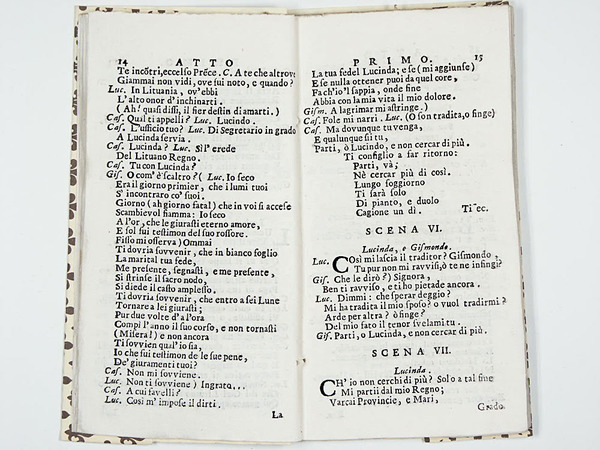 14 ATTO
Te incõtri, eccelso Prẽce. C. A te che altrove
Giammai non vidi, ove sui noto, e quando?
Luc. In Lituania, ov'ebbi
L'alto onor d'inchinarti.
(Ah! quasi dissi, il fier destin di amarti.)
Cas. Qual ti appelli? Luc. Lucindo.
Cas. L'ufficio tuo? Luc. Di Segretario in grado
A Lucinda servia.
Cas. Lucinda? Luc. Sì l'erede
Del Lituano Regno.
Cas. Tu con Lucinda?
Gis. O com' è scaltro? (Luc. Io seco
Era il giorno primier, che i lumi tuoi
S' incontraro co' suoi.
Giorno (ah giorno fatal) che in voi si accese
Scambievol fiamma: Io seco
A l'or, che le giurasti eterno amore,
E sol fui testimon del suo rossore.
Fisso mi osserva) Ommai
Ti dovria sovvenir, che in bianco foglio
La marital tu fede,
Me presente, segnasti, e me presente,
Si strinse il sacro nodo,
Si diede il casto amplesso,
Ti dovria sovvenir, che entro a sei Lune
Tornare a lei giurasti;
Pur due volte d'al'ora
Compì l'anno il suo corso, e non tornasti
(Misera!) e non ancora
Ti sovvien qual'io sia,
Io che fui testimon de le sue pene,
De' giuramenti tuoi?
Cas. Non mi sovviene.
Luc. Non ti sovviene) Ingrato...
Cas. A cui favelli?
Luc. Così m' impose il dirti.
La
PRIMO. 15
La tua fedel Lucinda; e se (mi aggiunse)
E se nulla ottener puoi da quel core,
Fa ch'io'l sappia, onde fine
Abbia con la mia vita il mio dolore.
Gism. A lagrimar mi astringe.)
Cas. Fole mi narri. Luc. (O son tradita, o finge)
Cas. Ma dovunque tu venga,
E qualunque sii tu,
Parti, ò Lucindo, e non cercar di più.
Ti configlio a far ritorno:
Parti, và;
Nè cercar più di così.
Lungo soggiorno
Ti farà solo
Di pianto, e duolo
Cagione un dì. Ti ec.
SCENA VI.
Lucinda, e Gismondo.
Luc. Così mi lascia il traditor? Gismondo,
Tu pur non mi ravvisi, ò te ne infingi?
Gis. Che le dirò?) Signora,
Ben ti ravviso, e ti ho pietade ancora.
Luc. Dimmi: che sperar deggio?
Mi ha tradita il mio sposo? o vuol tradirmi?
Arde per altra? ò finge?
Del mio fato il tenor svelami tu.
Gis. Parti, o Lucinda, e non cercar di più.
SCENA VII.
Lucinda.
CH' io non cerchi di più? Solo a tal fine
Mi partii dal mio Regno;
Varcai Provincie, e Mari,
Grado.